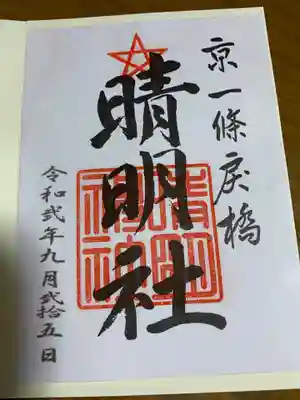 京一條戻橋
晴明社
令和弐年九月弐拾五日